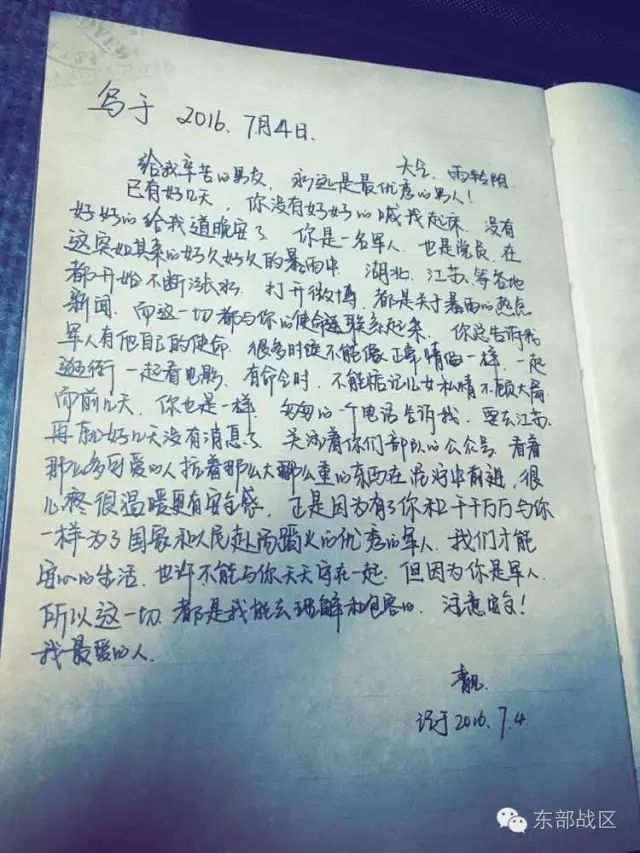 写于 2016. 7月4日.
天气. 雨转阴
给我辛苦的男友, 永远是最优秀的男人!
已有好几天, 你没有好好的喊我起床, 没有
好好的给我道晚安了. 你是一名军人, 也是党员, 在
这突如其来的好久好久的暴雨中. 湖北, 江苏, 等各地
都开始不断涨水, 打开微博, 都是关于暴雨的热点
新闻. 而这一切都与你的使命联系起来, 你总告诉我
军人有他自己的使命. 很多时候不能像正常情侣一样, 一起
逛街 一起看电影. 有命令时, 不能惦记儿女私情不顾大局
而前几天, 你也是一样, 匆匆的一个电话告诉我, 要去江苏,
再有好几天没有消息了. 关注着你们部队的公众号, 看着
那么多可爱的人扛着那么大那么重的东西在泥泞中前进, 很
心疼很温暖更有安全感, 正是因为有了你和千千万万与你
一样为了国家和人民赴汤蹈火的优秀的军人, 我们才能
安心的生活. 也许不能与你天天守在一起, 但因为你是军人.
所以这一切 都是我能去理解和包容的. 注意安全!
我最爱的人.
靓.
记于 2016. 7. 4.
东部战区